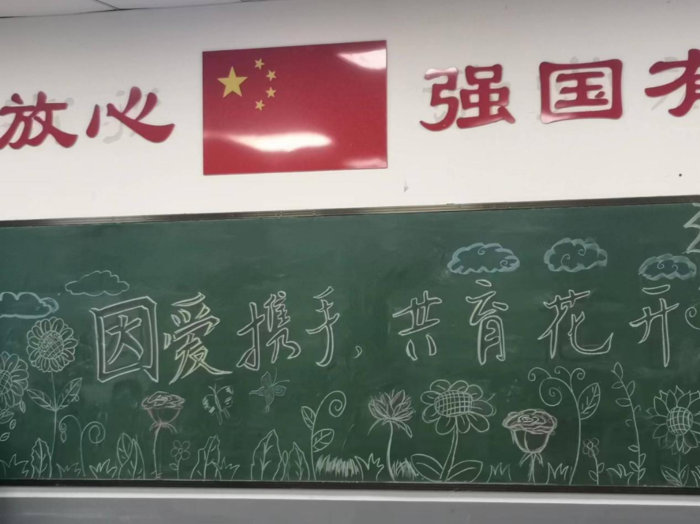 放心 强国有
因爱携手，共育花开